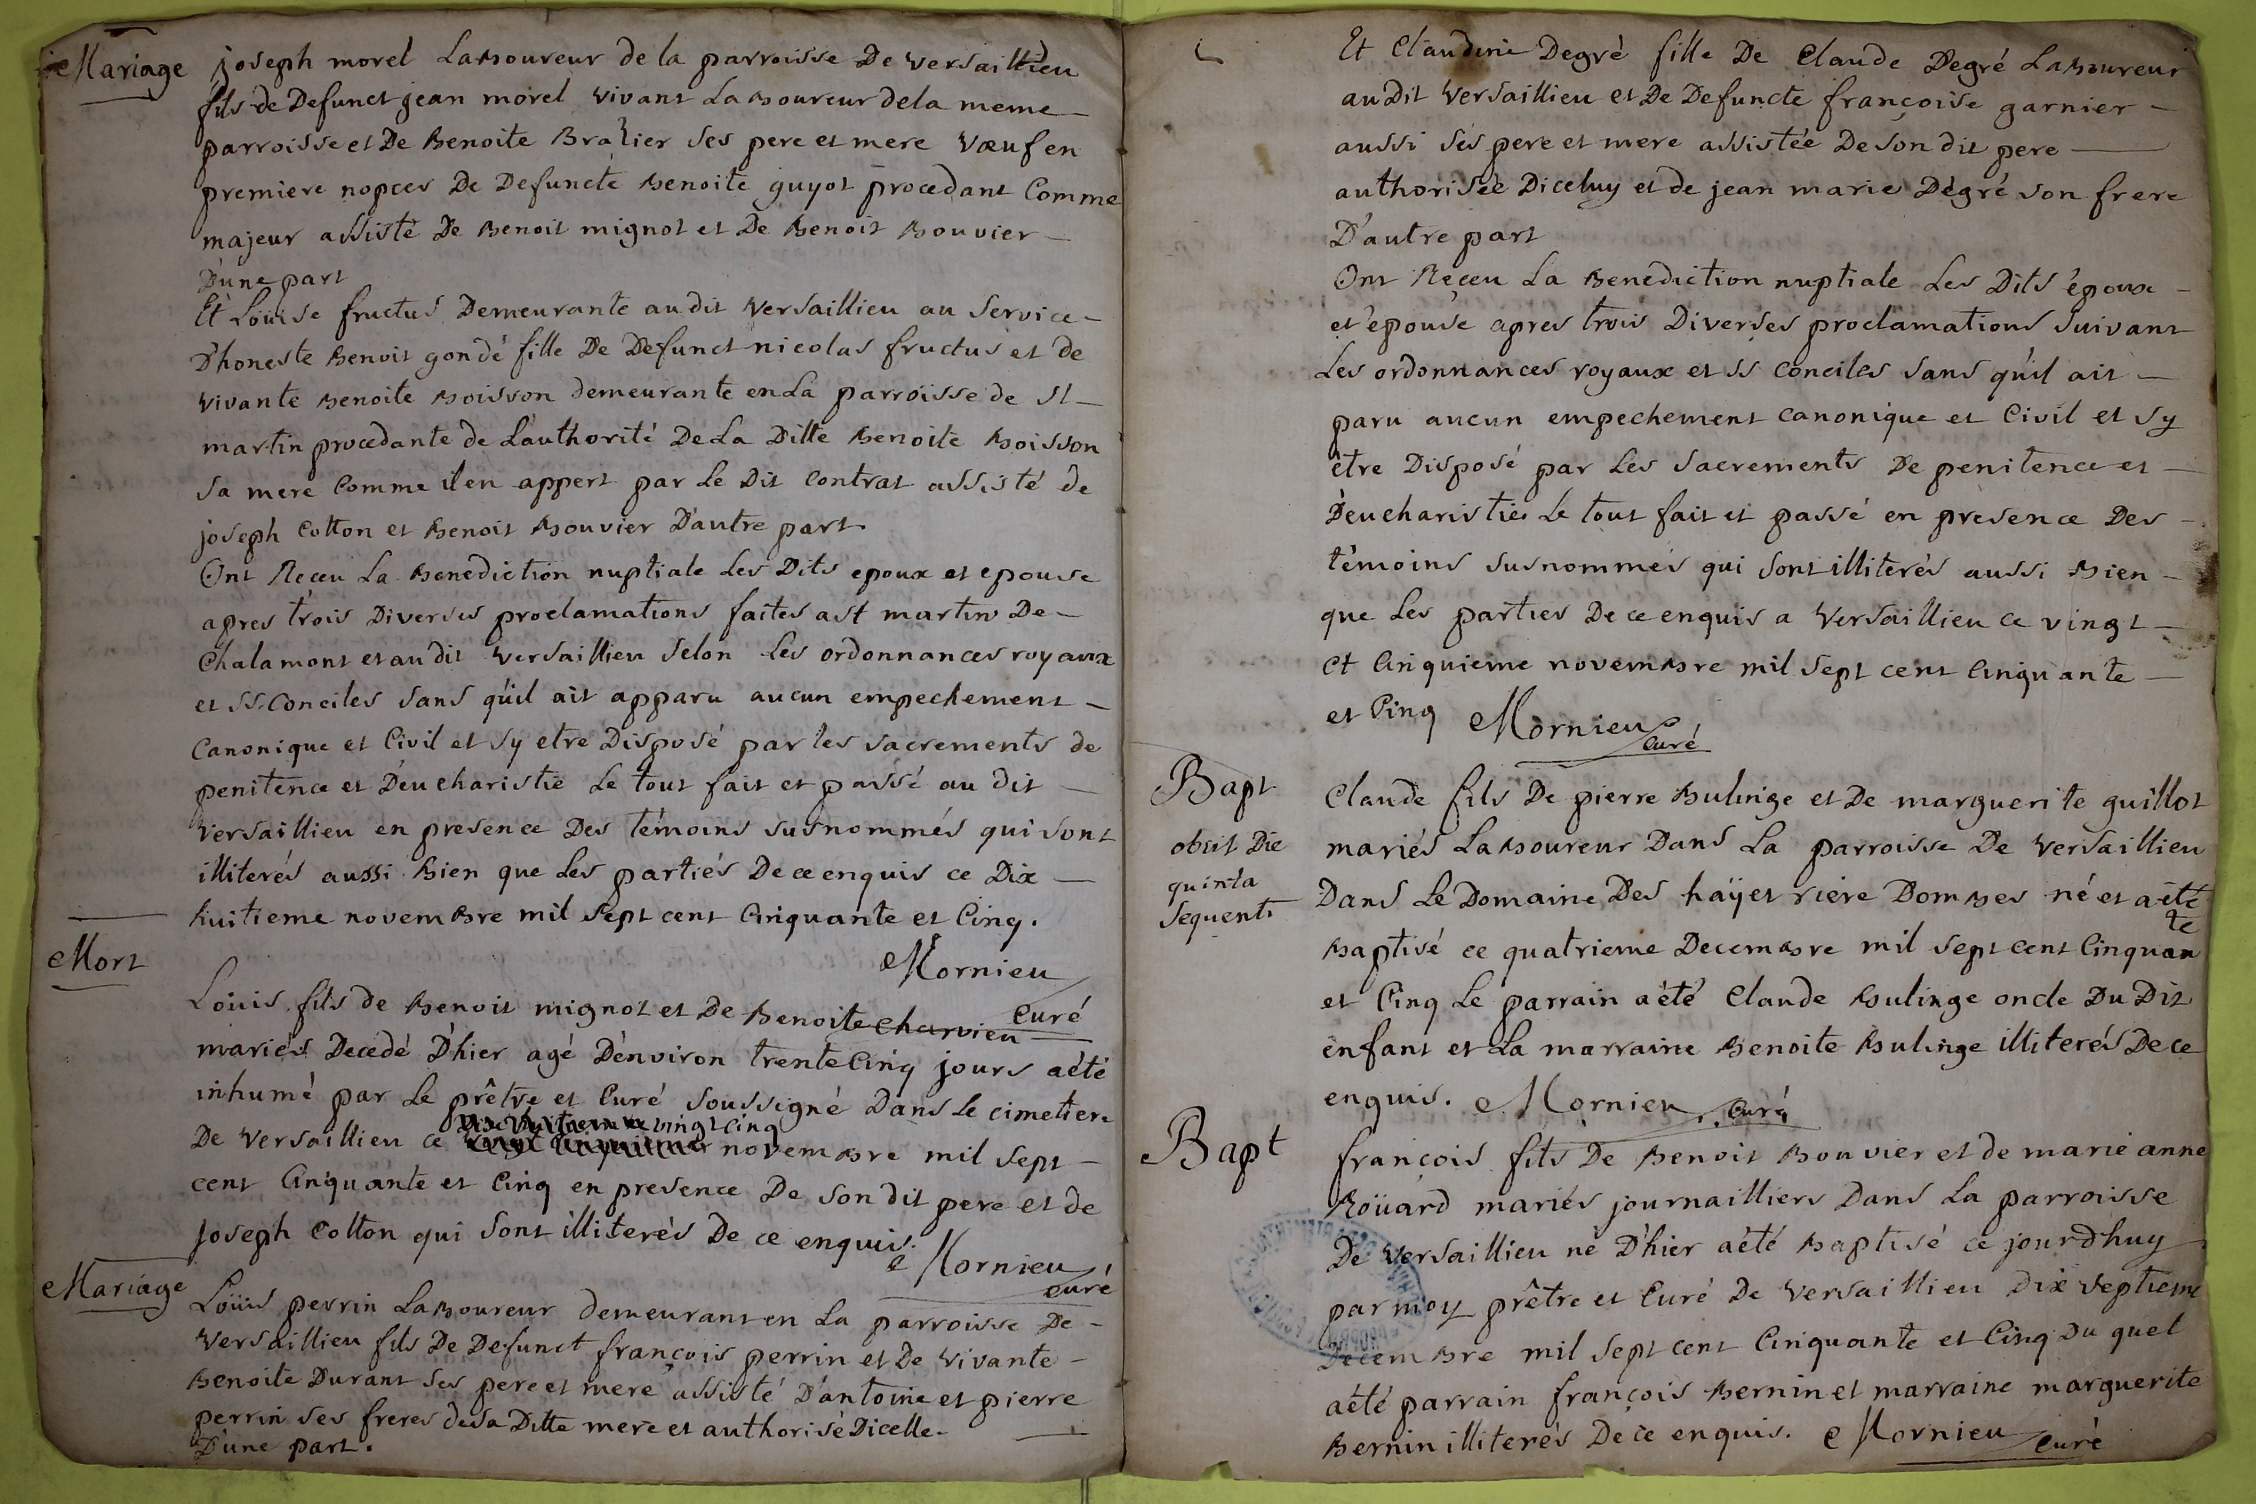 Mariage
joseph morel Laboureur de la parroisse De versaillieu
fils de Defunct jean morel vivant Laboureur dela meme
parroisse et De Benoite Brazier ses pere et mere vœuf en
premiere nopces De Defuncte Benoite guyot procedant Comme
majeur assisté De Benoit mignot et De Benoit Bouvier
D'une part
Et Loüise fructus Demeurante au dit versaillieu au service
D'honeste Benoit gondé fille De Defunct nicolas fructus et de
vivante Benoite Boisson demeurante en La parroisse de st
martin procedante de L'authorité De La Ditte Benoite Boisson
sa mere Comme il en appert par Le Dit Contrat assisté de
joseph Cotton et Benoit Bouvier D'autre part.
Ont Receu La Benediction nuptiale Les Dits epoux et epouse
apres trois Diverses proclamations faites a st martin De
Chalamont et au dit versaillieu selon Les ordonnances royaux
et ss. Conciles sans qu'il ait apparu aucun empechement
Canonique et Civil et s'y etre Disposé par les sacrements de
penitence et D'eucharistie Le tout fait et passé au dit
versaillieu en presence Des témoins susnommés qui sont
illiterés aussi Bien que Les partiés De ce enquis ce Dix
huitieme novembre mil sept cent Cinquante et Cinq.
Mornieu
Curé
Mort
Loüis fils de Benoit mignot et De Benoite charvieu
mariés Decedé D'hier agé D'environ trente Cinq jours a été
inhumé par Le prêtre et Curé soussigné Dans Le cimetiere
vingt cinq
De versaillieu ce novembre mil sept
cent Cinquante et Cinq en presence De son dit pere et de
joseph Cotton qui sont illiterés De ce enquis.
Mornieu
curé
Mariage
Loüis perrin Laboureur demeurant en La parroisse De
versaillieu fils De Defunct françois perrin et De vivante
Benoite Durant ses pere et mere assisté D'antoine et pierre
perrin ses freres de sa Ditte mere et authorisé Dicelle.
D'une part.
Et Claudine Degré fille De Claude Degré Laboureur
au Dit versaillieu et De Defuncte françoise garnier
aussi ses pere et mere assistée De son dit pere
authorisée Diceluy et de jean marie Dégré son frere
D'autre part
Ont Receu La Benediction nuptiale Les Dits époux
et épouse apres trois Diverses proclamations suivant
Les ordonnances royaux et ss conciles sans qu'il ait
paru aucun empechement canonique et Civil et s'y
être Disposé par Les sacrements De penitence et
D'eucharistie Le tout fait et passé en presence Des
témoins susnommés qui sont illiterés aussi Bien
que Les parties De ce enquis a versaillieu ce vingt
et Cinquieme novembre mil sept cent Cinquante
et Cinq Mornieu
curé
Bapt
obiit Die
quinta
sequenti
Claude fils De pierre Bulinge et De marguerite guillot
mariés Laboureur Dans La parroisse De versaillieu
Dans Le Domaine Des hayes riere Dombes né et a été
Baptisé ce quatrieme Decembre mil sept cent Cinquante
et Cinq Le parrain a été Claude Bulinge oncle Du Dit
enfant et La marraine Benoite Bulinge illiterés De ce
enquis. Mornieu curé
Bapt
francois fils De Benoit Bouvier et de marie anne
Roüard mariés journailliers Dans La parroisse
De versaillieu né D'hier a été Baptisé ce jourd'huy
par moy prêtre et Curé De versaillieu Dix septieme
Decembre mil sept cent Cinquante et Cinq Du quel
a été parrain françois Bernin et marraine marguerite
Bernin illiterés De ce enquis. Mornieu curé